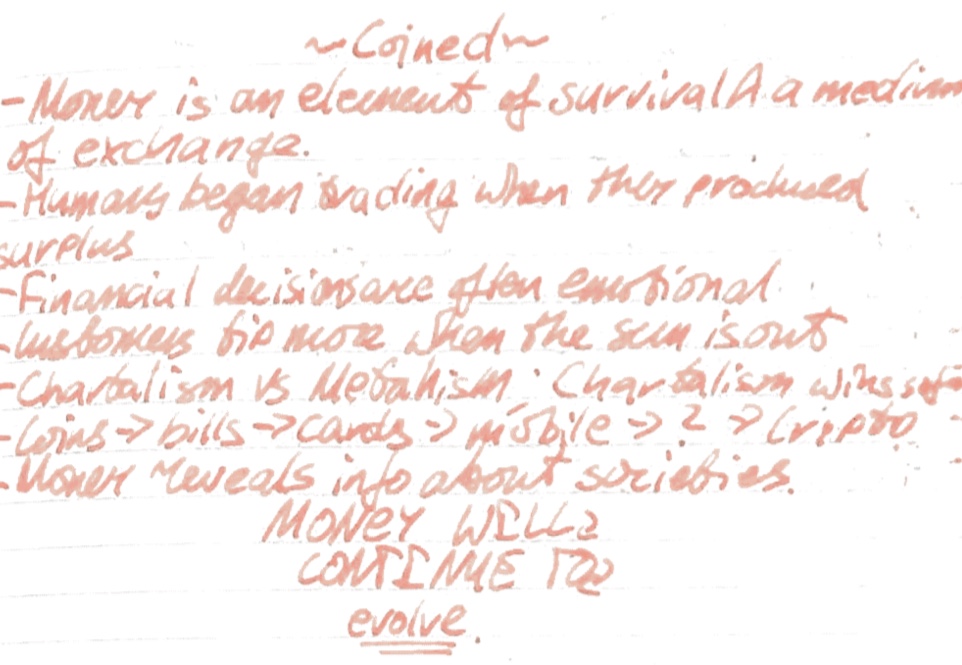 ~Coined~
- Money is an element of survival & a medium
of exchange.
- Humans began trading when they produced
surplus
- Financial decisions are often emotional
- Customers tip more when the sun is out
- Chartalism vs Metalism. Chartalism wins
- Coins -> bills -> cards -> mobile -> ? -> Cripto
- Money reveals info about societies.
MONEY WILL
CONTINUE TO
evolve.